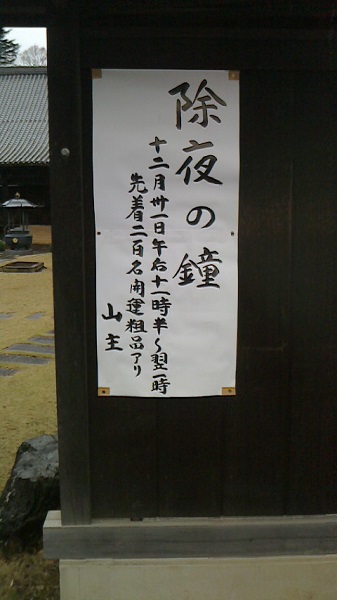 除夜の鐘
十二月卅一日午后十一時半~翌一時
先着二百名開運粗品アリ
山主